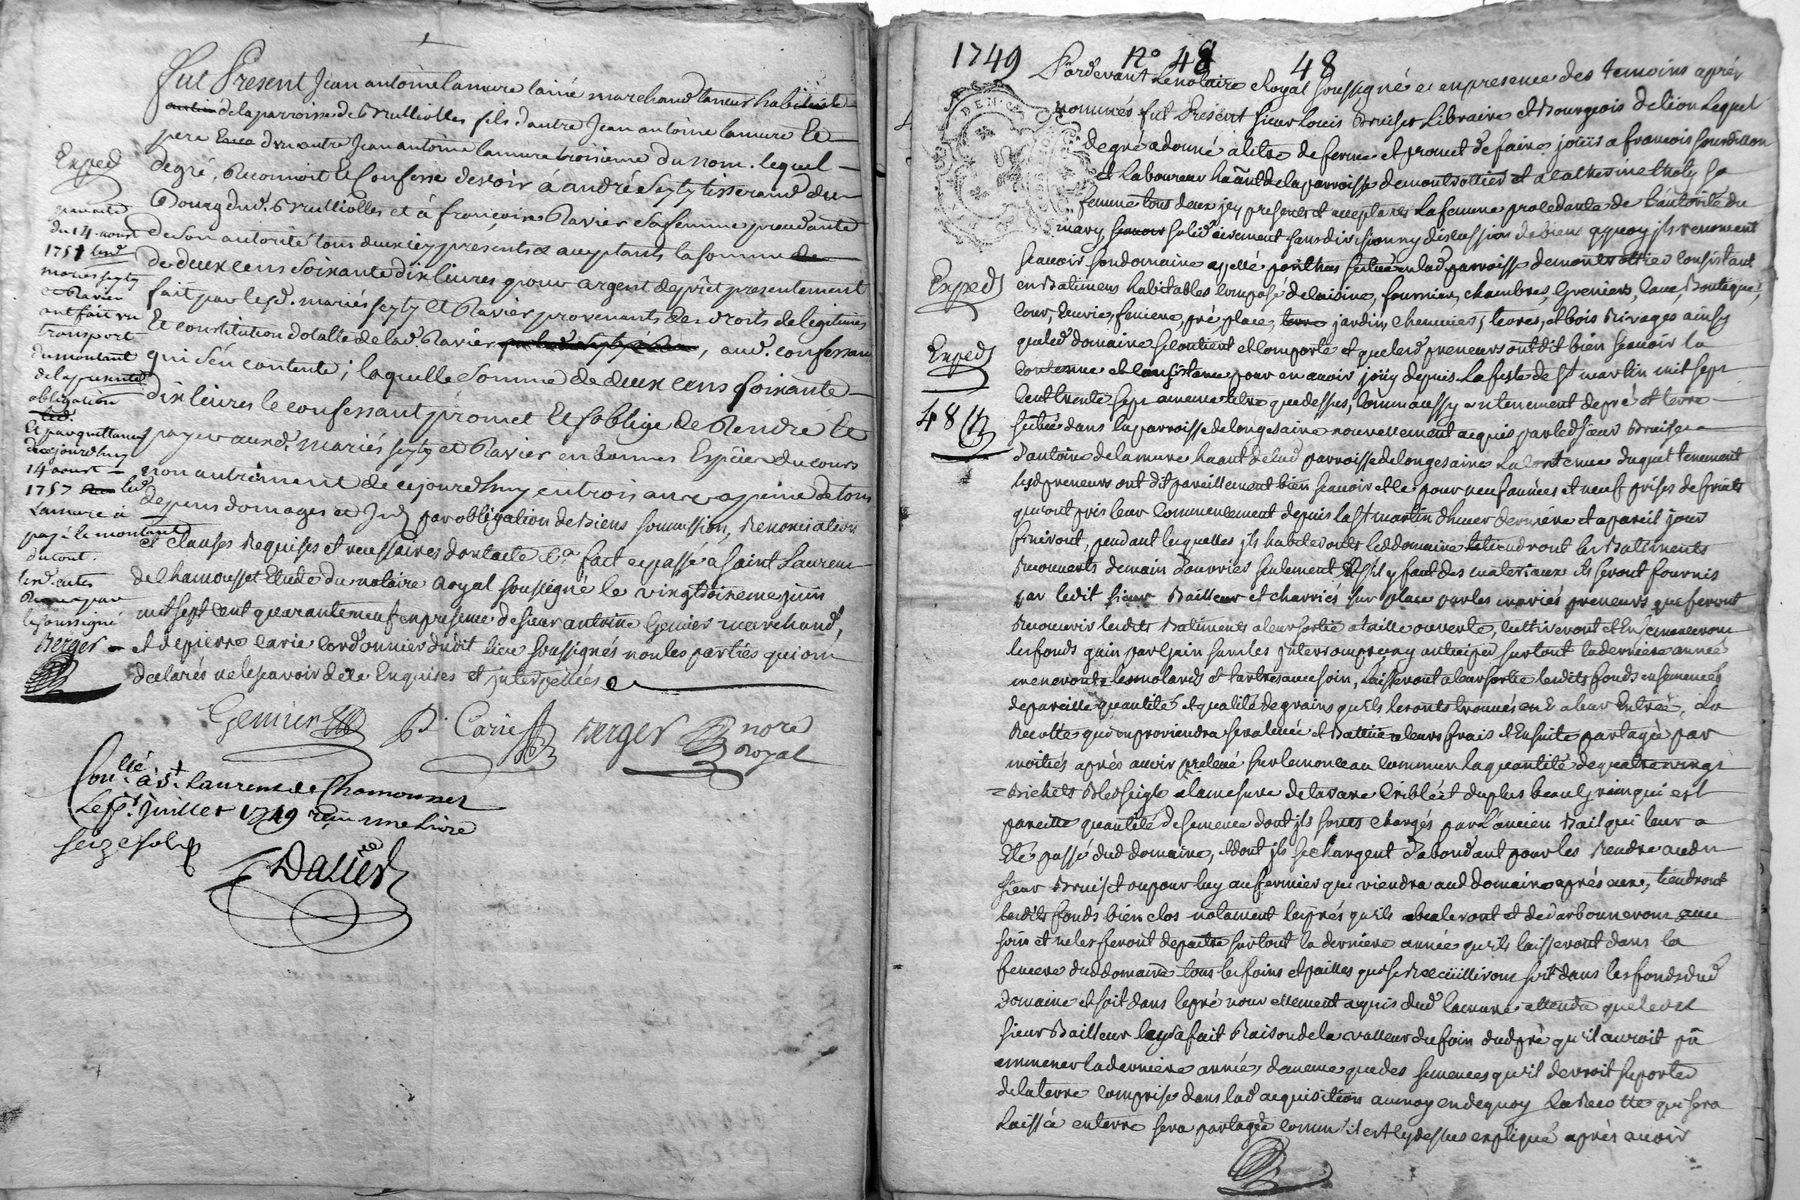 Fut Present Jean antoine lamure laîné marchand tanneur habitant
de la parroisse de Brulliolles fils d'autre Jean antoine lamure le
pere d'un autre Jean antoine lamure troisieme du nom. lequel
degré, Reconnoit et Confesse devoir à andré seyty tisserand du
Bourg dud. Brulliolles et à françoise Ravier sa femme procedante
de son autorité tous deux icy presents et acceptants la somme
de deux cens soixante dix livres pour argent de prêt presentement
fait par lesd. mariés seyty et Ravier provenants des droits de legitimes
Et constitution dotalle de lad. Ravier, aud. confessant
qui s'en contente; laquelle somme de deux cens soixante
dix livres le confessant promet Et s'oblige de Rendre Et
payer auxd. mariés seyty et Ravier en bonnes Espèces du cours
non autrement de cejourd'huy en trois ans a peine de tous
depens domages et par obligation de Biens soumission, Renonciation
et clauses Requises et necessaires dont acte fait et passé a Saint Laurent
de Chamousset Etude du notaire Royal soussigné le vingt deuxieme juin
mil sept cent quarante neuf en presence de sieur antoine Genier marchand,
et de pierre Carie Cordonnier dudit lieu soussignés non les parties qui ont
declarés ne le sçavoir de ce Enquises et interpellées
Exped
du 14 aoust
1757 lesd.
mariés seyty
et Ravier
ont fait un
transport
du montant
de la presente
obligation
Et par quittance
de cejourd'huy
14 aoust
1757 led.
Lamure a
payé le montant
du tout.
lesd. actes
Receus par
le soussigné
Berger
Genier P. Carie Berger nore
Royal
Conllé à St. Laurent de Chamousset
Le pr. Juillet 1749 reçu une livre
seize sols
Dalier
1749 No 48 48
Pardevant Le notaire Royal soussigné et en presence des temoins après
nommés fut Present sieur Louis Bruiset Libraire et Bourgeois de lion Lequel
de gré a donné à titre de ferme et promet de faire jouir a francois
et Laboureur haant de la parroisse de montrottier et a catherine sa
femme tous deux icy presents et acceptants La femme procedante de l'autorité du
mary, solidairement sans division ny discussion de biens a quoy ils renoncent
Sçavoir son domaine appellé situé en lad. parroisse de montrottier consistant
en Batimens habitables composé de cuisine, fourniere, chambres, Greniers, Cave, Boutique,
Cour, Ecuries, feniere, pré, place, jardin, chenevier, terres, et bois Rivages ainsy
que led. domaine se contient et comporte et que lesd. preneurs ont dit bien sçavoir la
Contenue et Consistance pour en avoir jouy depuis La feste de St. martin mil sept
Cent trente sept a meme titre que dessus, Comm' aussy un tenement de pré et terre
situé dans la parroisse de longesaine nouvellement acquis par led. sieur Bruiset
d'antoine de lamure haant de lad. parroisse de longesaine La Contenue duquel tenement
lesd. preneurs ont dit pareillement bien sçavoir et ce pour neuf années et neuf prises de fruits
qui ont pris leur Commencement depuis la St. martin d'hiver derniere et a pareil jour
finiront, pendant lesquelles ils habiteront led. domaine tiendront les Batiments
Recouverts de main d'ouvriers seulement, Et s'il y faut des materiaux ils seront fournis
par ledit sieur Bailleur et charriés sur place par les mariés preneurs que feront
Recouvrir lesdits Batiments a leur sortie a taille ouverte, cultiveront et Ensemenceront
les fonds gain par gain sans les interrompre ny anticiper surtout la derniere année
laisseront a leur sortie lesdits fonds ensemencés
de pareille quantité et qualité de grains qu'ils les ont trouvés a leur Entrée, La
Recolte qui en proviendra sera levée et Battue a leurs frais et Ensuite partagée par
moitiés après avoir prelevé sur le monceau commun la quantité de quatre vingt
Bichets Bled seigle a la mesure de criblé et du plus beau Grain qui est
pareille quantité de semence dont ils sont chargés par l'ancien Bail qui leur a
Eté passé dud. domaine, et dont ils se chargent d'abondant pour les Rendre aud.
sieur Bruiset ou pour luy au fermier qui viendra aud. domaine après eux, tiendront
lesdits fonds bien clos notament les prés qu'ils
soin et ne les feront depaitre surtout la derniere année qu'ils laisseront dans la
feniere dud. domaine tous les foins et pailles qui se Recueilliront soit dans les fonds dud.
Domaine et soit dans le pré nouvellement acquis dud. lamure attendu que ledit
sieur Bailleur leur a fait Raison de la valleur du foin dud. pré qu'il auroit pû
emmener la derniere année, de meme que des semences qu'il devroit supporter
de la terre comprise dans lad. acquisition au moyen de quoy La Recolte qui sera
Laissée en terre sera partagée comm' il est cy dessus expliqué après avoir
Exped
Exped
48